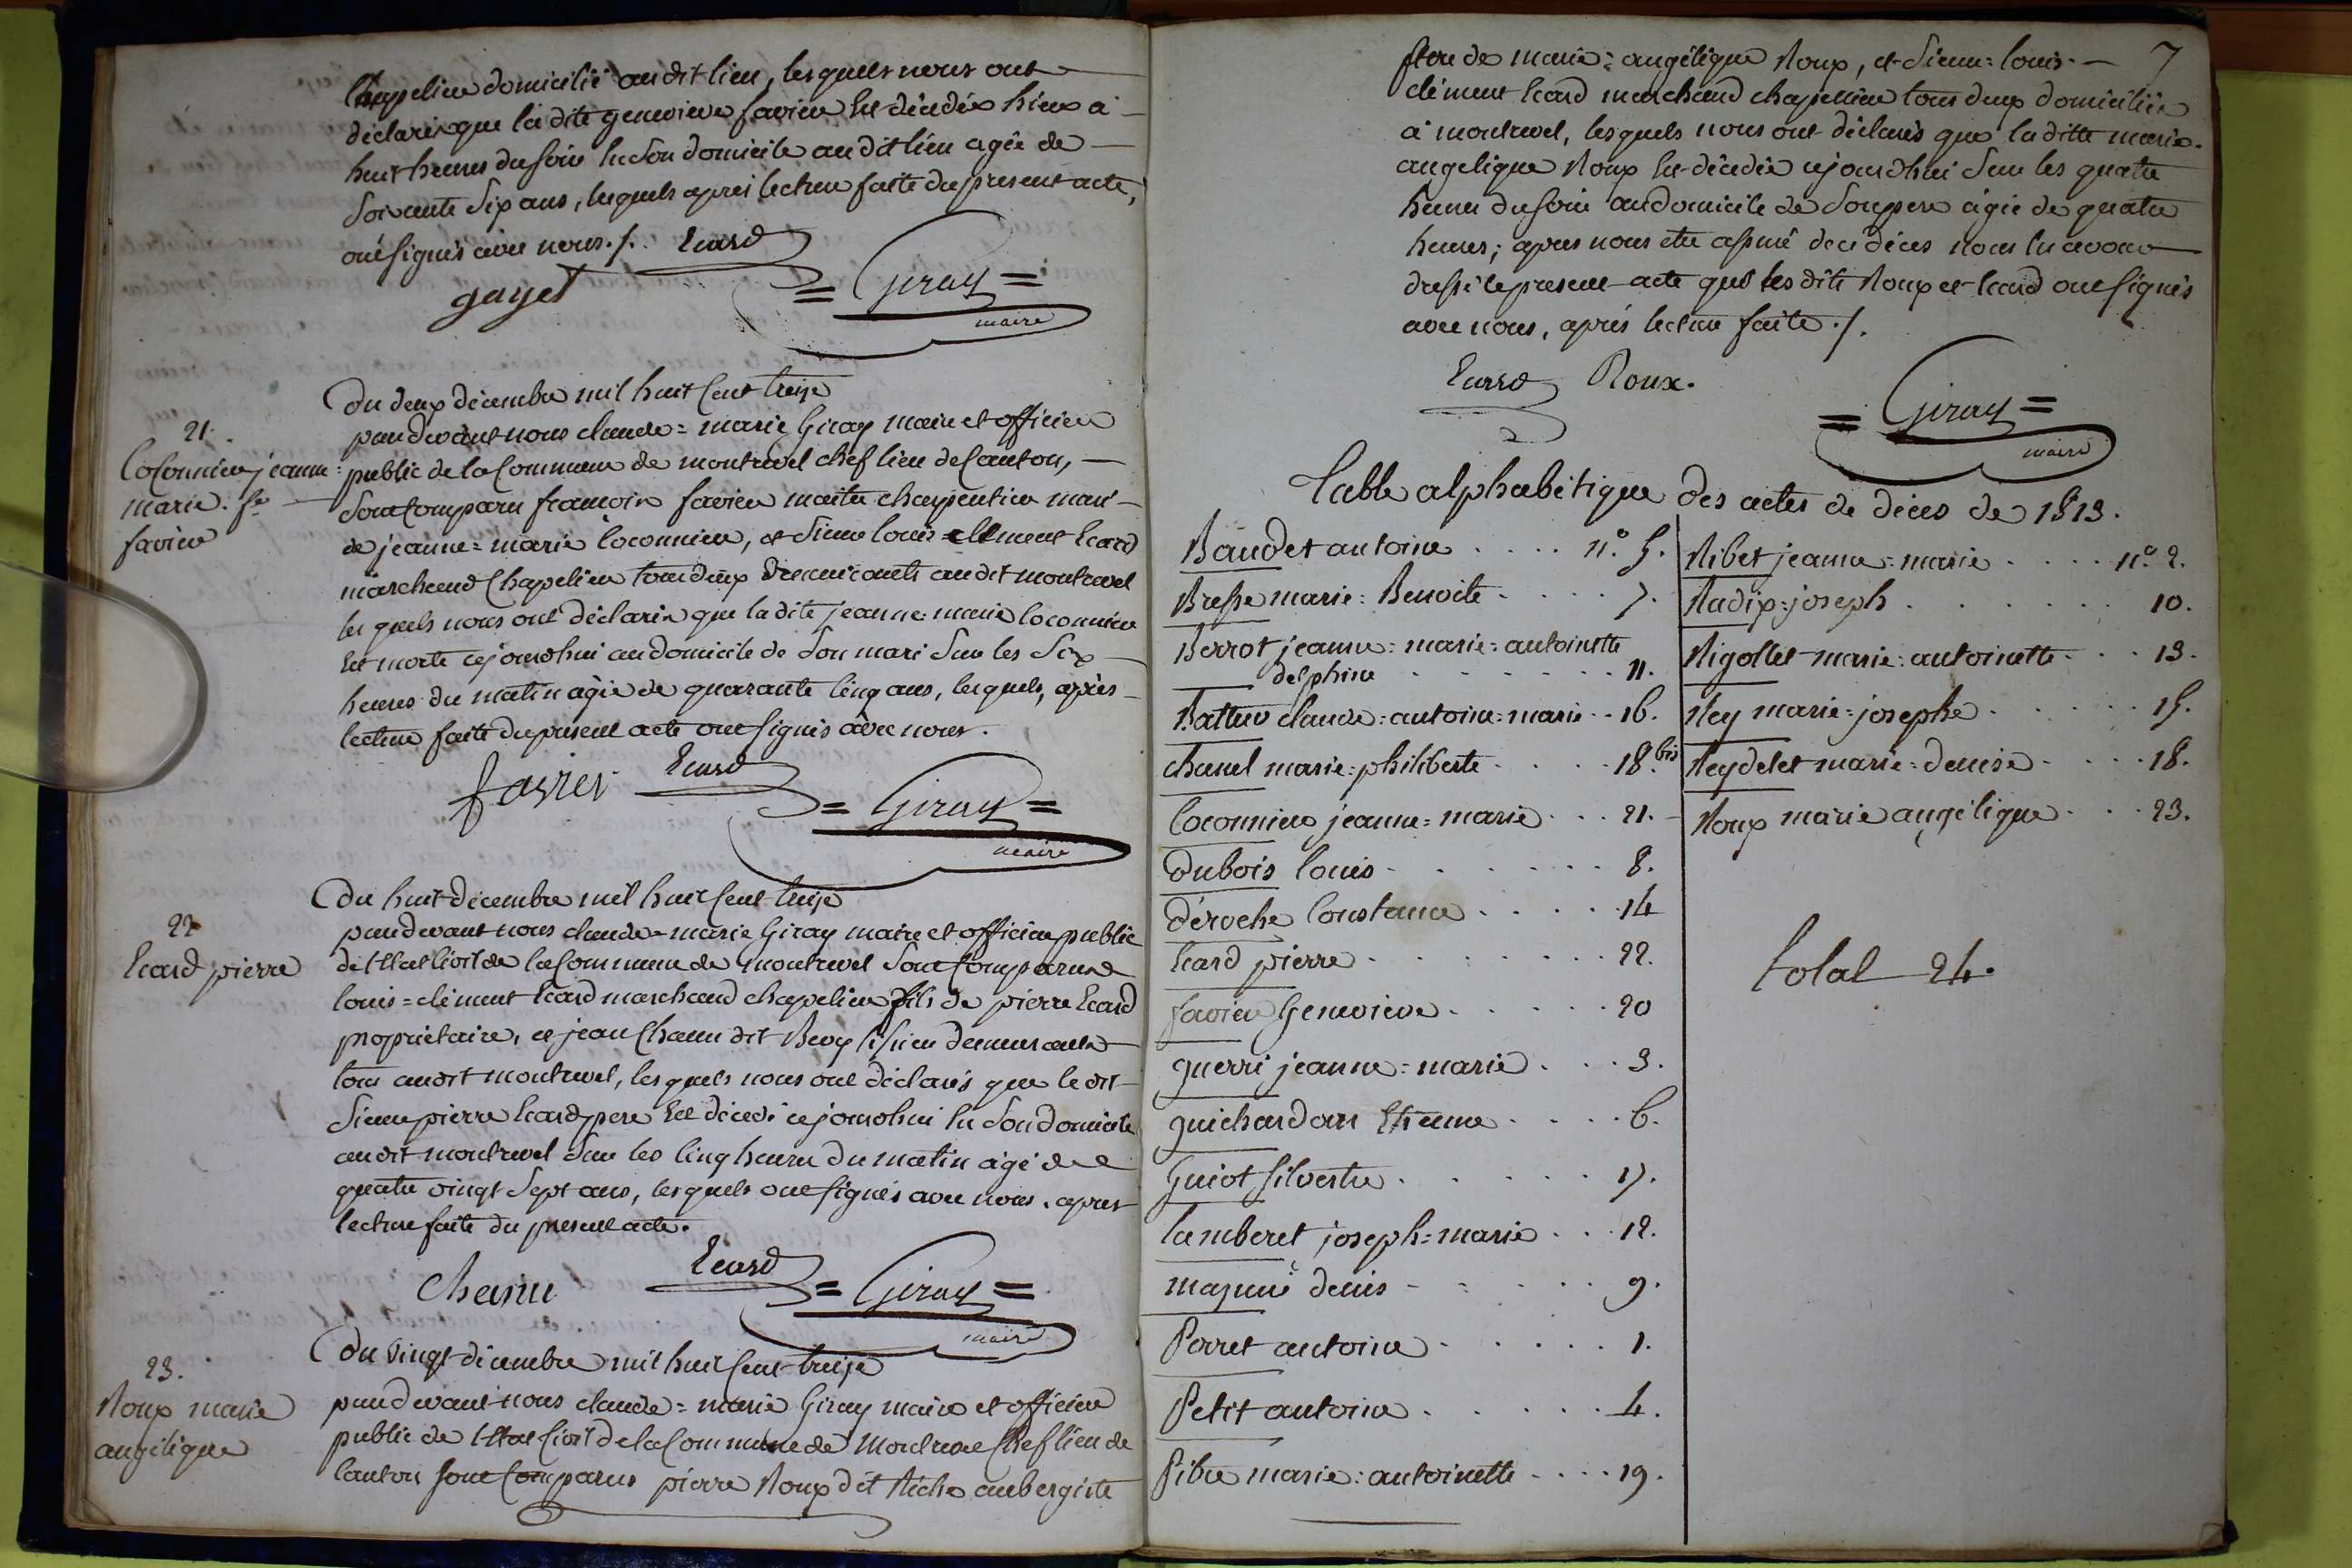 Chapelier domicilié au dit lieu, lesquels nous ont
déclarés que la dite genevieve favier Est décédée hier à
huit heures du soir En son domicile au dit lieu agée de
Soixante Six ans, lesquels après lecture faite du present acte,
ont signés avec nous ./. Ecard
gayet = Giray =
maire
Du deux décembre mil huit Cent treize
21.
Coconnier jeanne =
marie. fe
favier
pardevant nous claude = marie Giray maire et officier
public de la Commune de montrevel chef lieu de Canton,
Sont Comparu francois favier maitre charpentier mari
de jeanne = marie coconnier, et Sieur louis = clément Ecard
marchand Chapelier tous deux demeurants au dit montrevel
les quels nous ont déclarés que la dite jeanne marie coconnier
Est morte cejourdhui au domicile de Son mari Sur les Six
heures du matin agée de quarante Cinq ans, lesquels, après
lecture faite du present acte ont signés avec nous.
favier Ecard = Giray =
maire
Du huit décembre mil huit Cent treize
22
Ecard pierre
pardevant nous claude = marie Giray maire et officier public
de l'Etat Civil de la Commune de montrevel Sont Comparus
louis = clément Ecard marchand chapelier fils de pierre Ecard
proprietaire, et jean Chanu dit demeurants
tous au dit montrevel, lesquels nous ont déclarés que le dit
Sieur pierre Ecard pere Est décédé cejourdhui En Son domicile
au dit montrevel Sur les Cinq heures du matin agé de
quatre vingt Sept ans, lesquels ont signés avec nous, après
lecture faite du present acte.
Chanu Ecard = Giray =
maire
Du vingt décembre mil huit Cent treize
23.
Roux marie
angélique
pardevant nous claude = marie Giray maire et officier
public de l'Etat Civil de la Commune de Montrevel Chef lieu de
Canton Sont Comparus pierre Roux dit aubergiste
7
pere de marie = angélique Roux, et Sieur = louis
clément Ecard marchand chapellier tous deux domiciliés
à montrevel, lesquels nous ont déclarés que la ditte marie
angelique Roux Est décédée cejourdhui Sur les quatre
heures du soir au domicile de Son pere agée de quatre
heures ; après nous etre assuré de ce décès nous En avons
dressé le present acte que les dits Roux et Ecard ont signés
avec nous, après lecture faite ./.
Ecard Roux. = Giray =
maire
Table alphabétique des actes de décès de 1813.
Baudet antoine . . . . n.° 5.
Bresse marie = Benoite . . . . 7.
Berrot jeanne = marie = antoinette
delphine . . . . . . 11.
Battur claude = antoine = marie . . 16.
chanel marie = philiberte . . . . 18. bis
Coconnier jeanne = marie . . . 21.
Dubois louis . . . . . . 8.
Déroche Constance . . . . . 14
Ecard pierre . . . . . . . 22.
favier Genevieve . . . . . 20
guerri jeanne = marie . . . 3.
guichardan Etienne . . . . 6.
Guiot Silvestre . . . . . . 17.
lamberet joseph = marie . . . 12.
mazuué denis . . . . . 9.
Perret antoine . . . . . . 1.
Petit antoine . . . . . . 4.
Pibre marie = antoinette . . . . 19.
Ribet jeanne = marie . . . . n.° 2.
Radix = joseph . . . . . . . 10.
Rigollet marie = antoinette . . . 13.
Rey marie = josephe . . . . . . 15.
Reydelet marie = denise . . . . 18.
Roux marie angélique . . . 23.
Total 24.